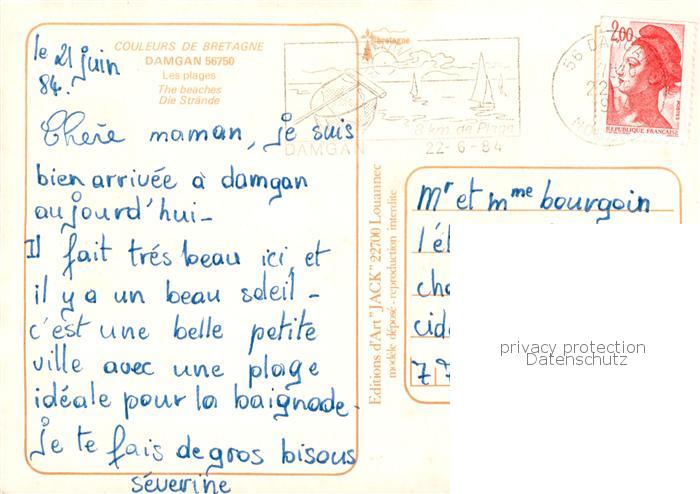 le 21 juin
84.
COULEURS DE BRETAGNE
DAMGAN 56750
Les plages
The beaches
Die Strände
Chère maman, je suis
bien arrivée à damgan
aujourd'hui-
Il fait trés beau ici, et
il y a un beau soleil -
c'est une belle petite
ville avec une plage
idéale pour la baignade.
Je te fais de gros bisous
séverine
Bretagne
8 km de Plage
DAMGAN
22-6-84
56 DAMGAN
2,00
POSTES
REPUBLIQUE FRANÇAISE
Editions d'Art "JACK" 22700 Louannec
modèle déposé - reproduction interdite
Mr et mme bourgoin
l'él
cha
cid
77
privacy protection
Datenschutz